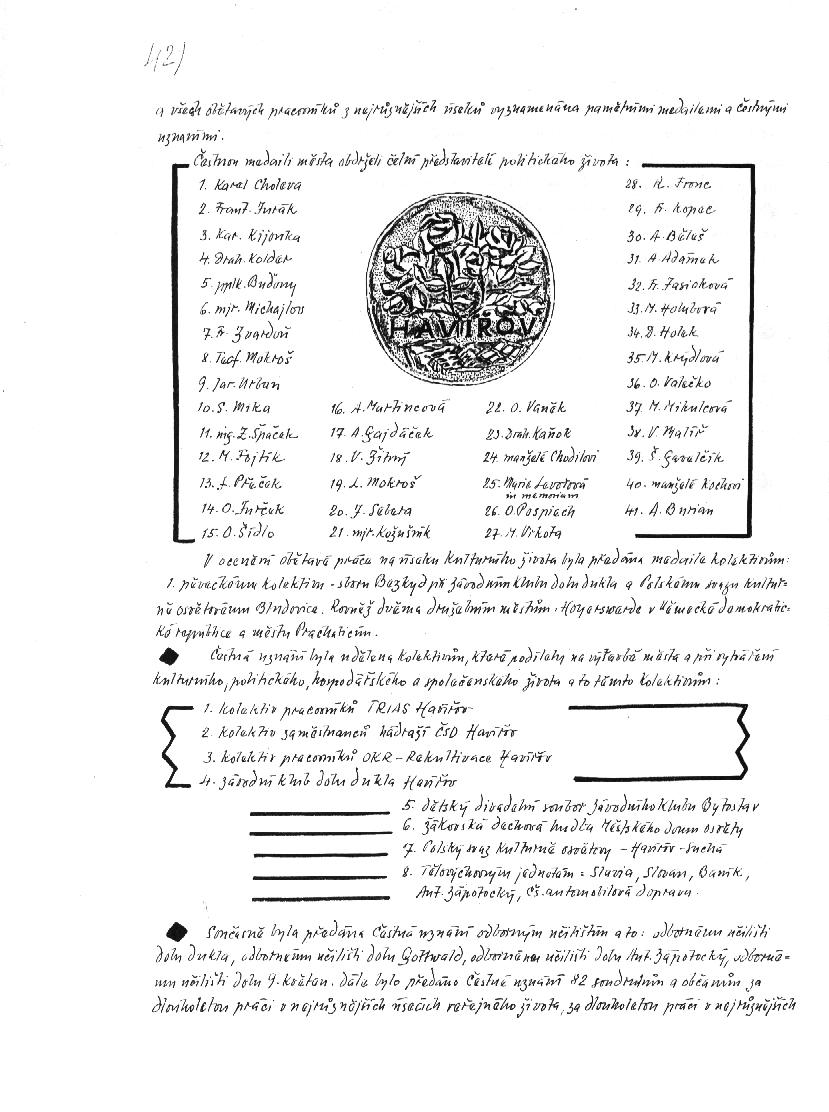 42)
a všech obětavých pracovníků z nejrůznějších úseků vyznamenána pamětními medailemi a čestnými
uznáními.
Čestnou medaili města obdrželi čelní představitelé politického života :
1. Karel Choleva
2. Frant. Jurák
3. Kar. Kijonka
4. Drah. Koldar
5. pplk. Buďony
6. mjr. Michajlov
7. Fr. Zvardoň
8. Teof. Mokroš
9. Jar. Urban
10. S. Mika
11. ing. Z. Špaček
12. M. Fojtík
13. J. Ptáček
14. O. Jurček
15. O. Šídlo
HAVÍŘOV
16. A. Martincová
17. A. Gajdáček
18. V. Žitný
19. L. Mokroš
20. J. Sabela
21. mjr. Kožušník
22. O. Vaněk
23. Drah. Kaňok
24. manželé Chodilovi
25. Marie Levotová
in memoriam
26. O. Pospiech
27. M. Vrhota
28. R. Franc
29. Fr. Kopec
30. A. Běluš
31. A. Adámek
32. Fr. Jasioková
33. M. Holubová
34. B. Holek
35. M. Krýdlová
36. O. Valečko
37. M. Mikulcová
38. V. Malíř
39. Š. Gavalčík
40. manželé Kochovi
41. A. Burian
V ocenění obětavé práce na úseku kulturního života byla předána medaile kolektivům:
1. pěveckému kolektivu - sboru Bezkyd při závodním klubu dolu Dukla a Polskému svazu kultur-
ně osvětovému Bludovice. Rovněž dvěma družebním městům: Hoyerswerde v Německé demokratic-
ké republice a městu Prachaticům.
Čestná uznání byla udělena kolektivům, které podílely na výstavbě města a při vytváření
kulturního, politického, hospodářského a společenského života a to těmto kolektivům :
1. kolektiv pracovníků TRIAS Havířov
2. kolektiv zaměstnanců nádraží ČSD Havířov
3. kolektiv pracovníků OKR - Rekultivace Havířov
4. závodní klub dolu Dukla Havířov
5. dětský divadelní soubor závodního klubu Bytostav
6. žákovská dechová hudba Městského domu osvěty
7. Polský svaz kulturně osvětový - Havířov - Suchá
8. Tělovýchovným jednotám : Slavia, Slovan, Baník,
Ant. Zápotocký, Čs. automobilová doprava.
Současně byla předána Čestná uznání odborným učilištím a to: odbornému učilišti
dolu Dukla, odbornému učilišti dolu Gottwald, odbornému učilišti dolu Ant. Zápotocký, odborné-
mu učilišti dolu 9. květen. Dále bylo předáno Čestné uznání 82 soudruhům a občanům za
dlouholetou práci v nejrůznějších úsecích veřejného života, za dlouholetou práci v nejrůznějších